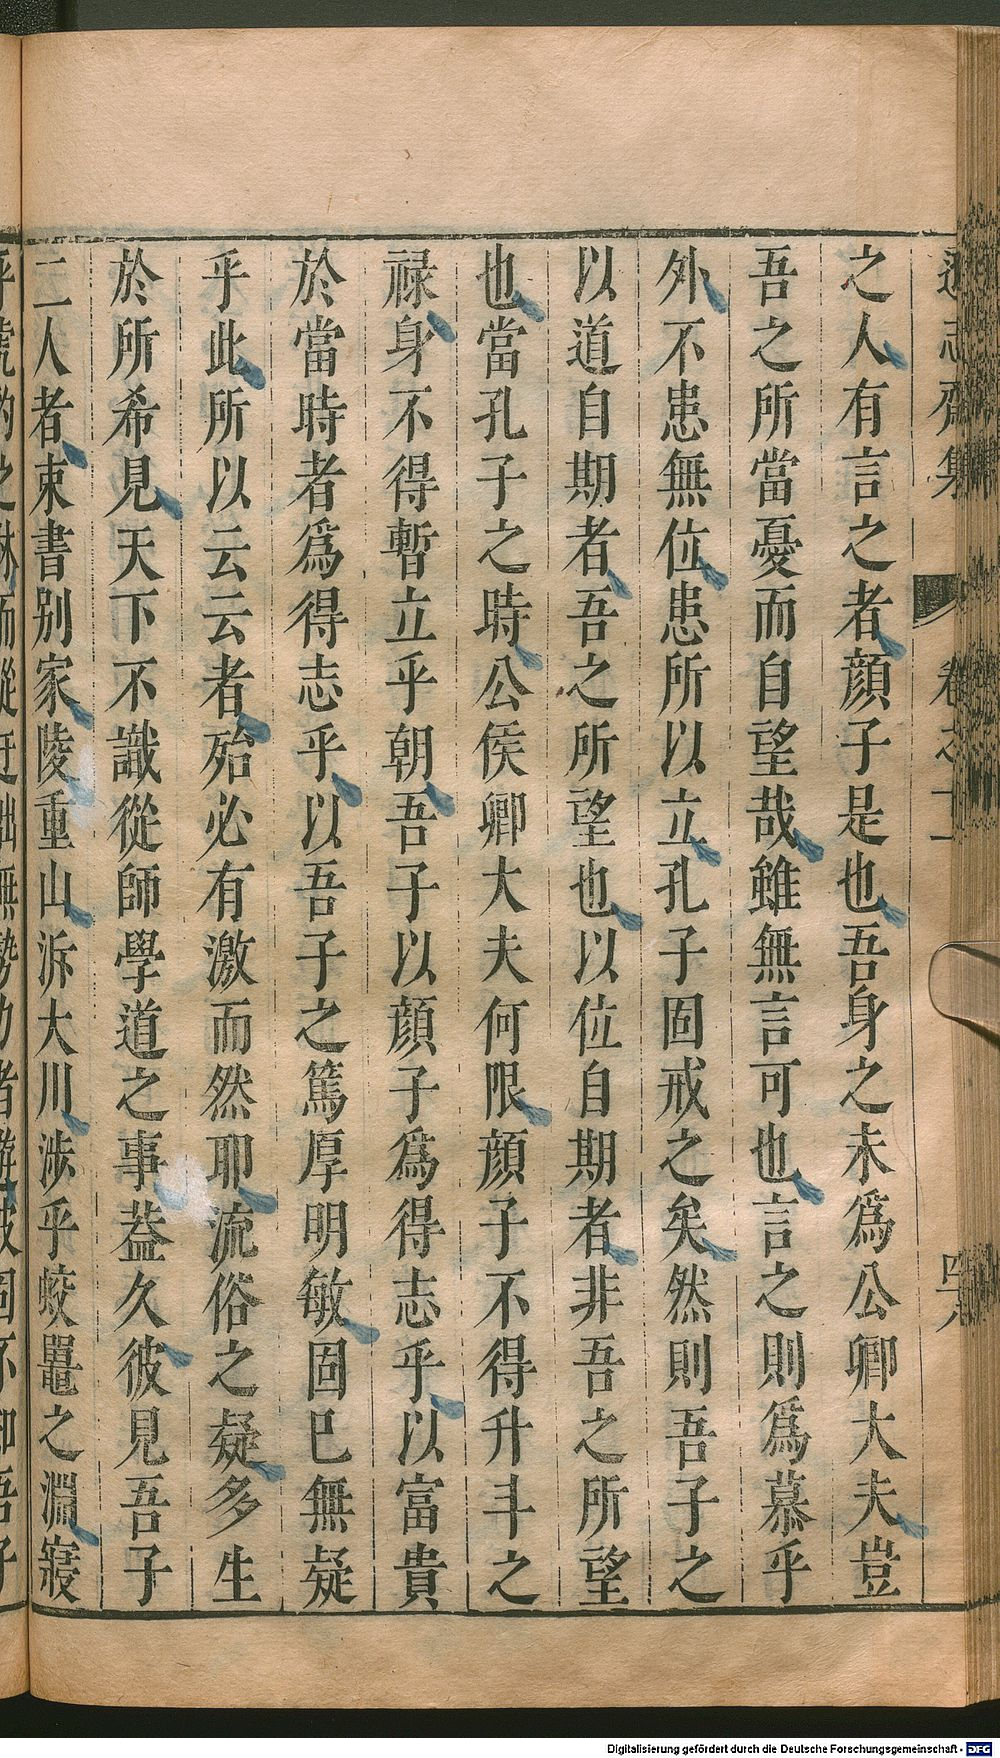 遜志齋集 卷之十一 四十八
之人有言之者顏子是也吾身之未爲公卿大夫豈
吾之所當憂而自望哉雖無言可也言之則爲慕乎
外不患無位患所以立孔子固戒之矣然則吾子之
以道自期者吾之所望也以位自期者非吾之所望
也當孔子之時公侯卿大夫何限顏子不得升斗之
禄身不得暫立乎朝吾子以顏子爲得志乎以富貴
於當時者爲得志乎以吾子之篤厚明敏固已無疑
乎此所以云云者殆必有激而然耶流俗之疑多生
於所希見天下不識從師學道之事葢久彼見吾子
二人者束書別家陵重山泝大川涉乎蛟鼉之淵寢
Digitalisierung gefördert durch die Deutsche Forschungsgemeinschaft - DFG